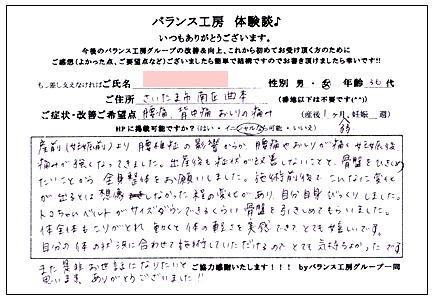 バランス工房 体験談♪
いつもありがとうございます。
今後のバランス工房グループの改善&向上、これから初めてお受け頂く方のために
ご感想(よかった点、ご要望点など)ございましたら簡単で結構ですのでお書き頂けましたら幸いです!!
もし差し支えなければご氏名 性別 男・女 年齢 30 代
ご住所 さいたま市南区曲本 (番地以下は不要です(^^))
ご症状・改善ご希望点 腰痛、背中痛 おしりの痛み (産後 1ヶ月、妊娠 週)
HPに掲載可能ですか?(はい・イニシャルなら可能・いいえ)
産前(妊娠前)より腰椎症の影響からか、腰痛やおしりが痛く妊娠後
痛みが強くなってきました。出産後も症状が改善しないことと、骨盤をひきしめ
たいことから全身整体をお願いしました。施術前後でこんなに変化
が出るとは想像しなかった程の変化があり、自分自身びっくりしました。
トコちゃんベルトがサイズダウンできるくらい骨盤を引きしめてもらいました。
体全体もこりがとれ動くと体の軽さを実感できてとても嬉しいです。
自分の体の状況に合わせて施術していただけるのでとても気持ちよかったです
また是非お世話になりたいと
思います、ありがとうございました!!
ご協力感謝いたします!!! byバランス工房グループ一同